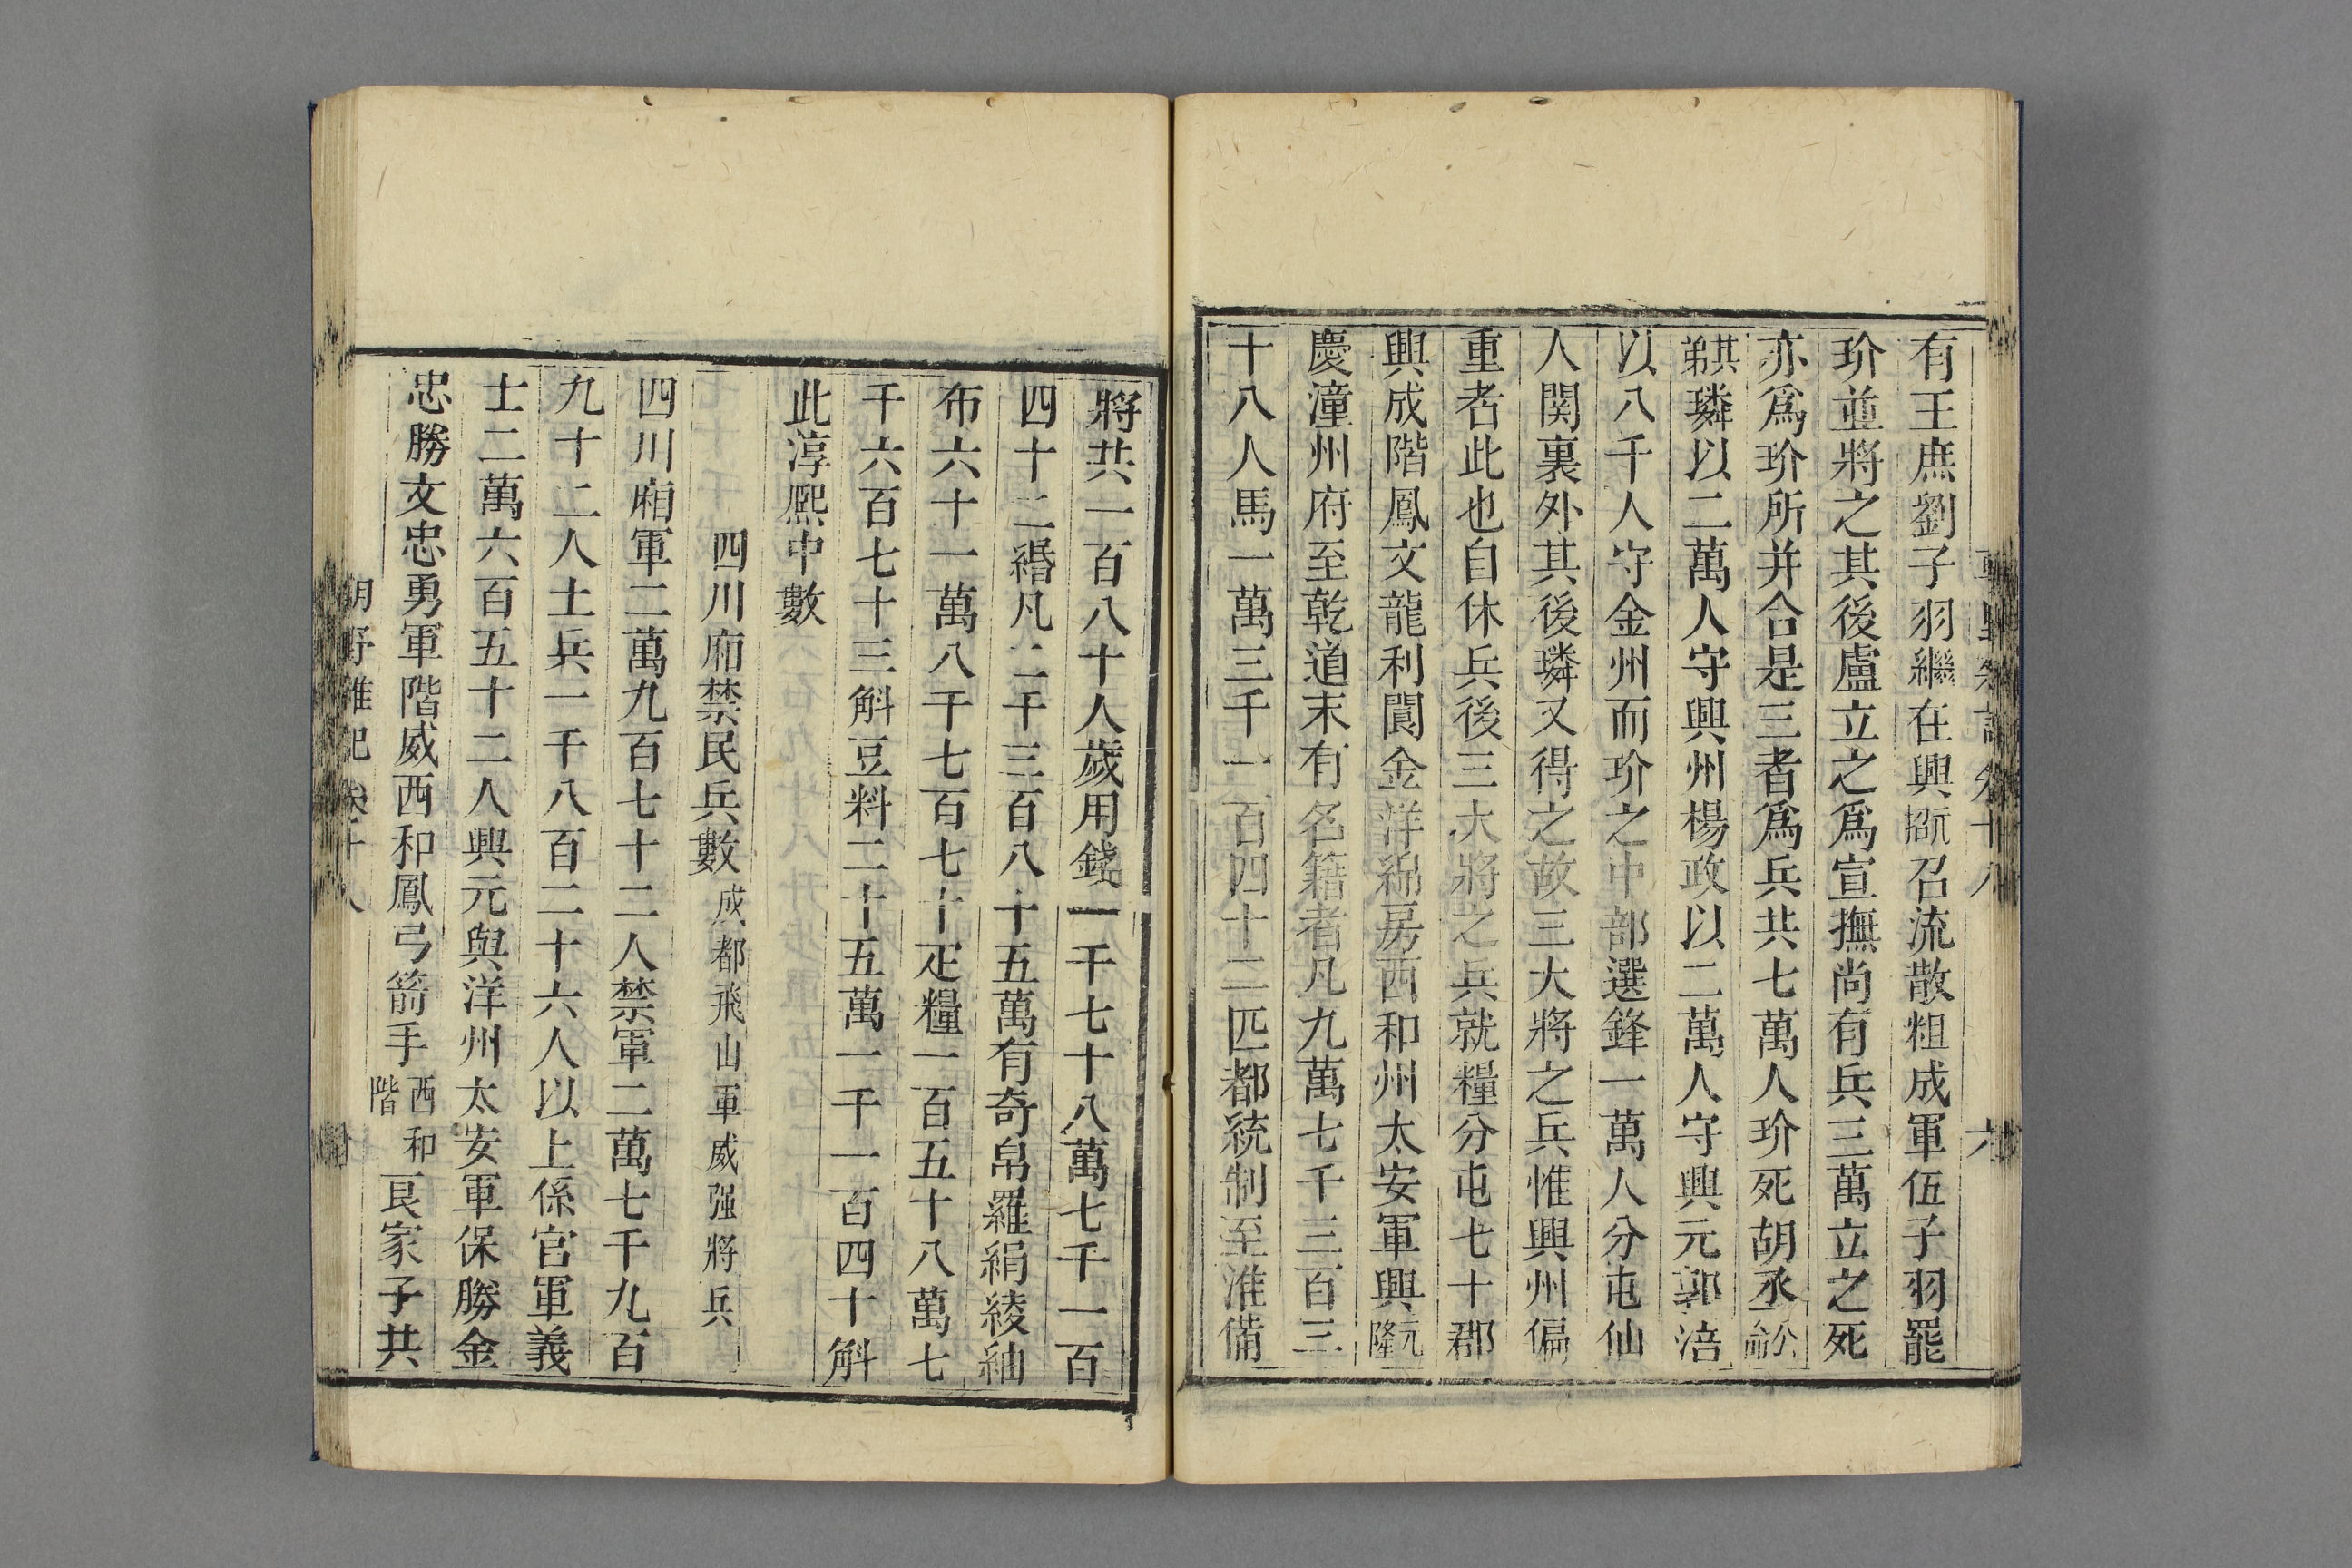 有王庶劉子羽繼在興元招召流散粗成軍伍子羽罷
玠並將之其後盧立之爲宣撫尚有兵三萬立之死
亦爲玠所并合是三者爲兵共七萬人玠死胡丞公命
其弟璘以二萬人守興州楊政以二萬人守興元郭涪
以八千人守金州而玠之中部選鋒一萬人分屯仙
人関裏外其後璘又得之故三大將之兵惟興州偏
重者此也自休兵後三大將之兵就糧分屯七十郡
興成階鳳文龍利閬金洋綿房西和州太安軍興元隆
慶潼州府至乾道末有名籍者凡九萬七千三百三
十八人馬一萬三千一百四十二匹都統制至淮備
將共一百八十人歲用錢一千七十八萬七千一百
四十二緡凡二千三百八十五萬有奇帛羅絹綾紬
布六十一萬八千七百七十疋糧一百五十八萬七
千六百七十三斛豆料二十五萬一千一百四十斛
此淳熙中數
四川廂禁民兵數 成都飛山軍威强將兵
四川廂軍二萬九百七十二人禁軍二萬七千九百
九十二人土兵一千八百二十六人以上係官軍義
士二萬六百五十二人興元與洋州太安軍保勝金
忠勝文忠勇軍階威西和鳳弓箭手西和階良家子共
朝野雜記卷十八